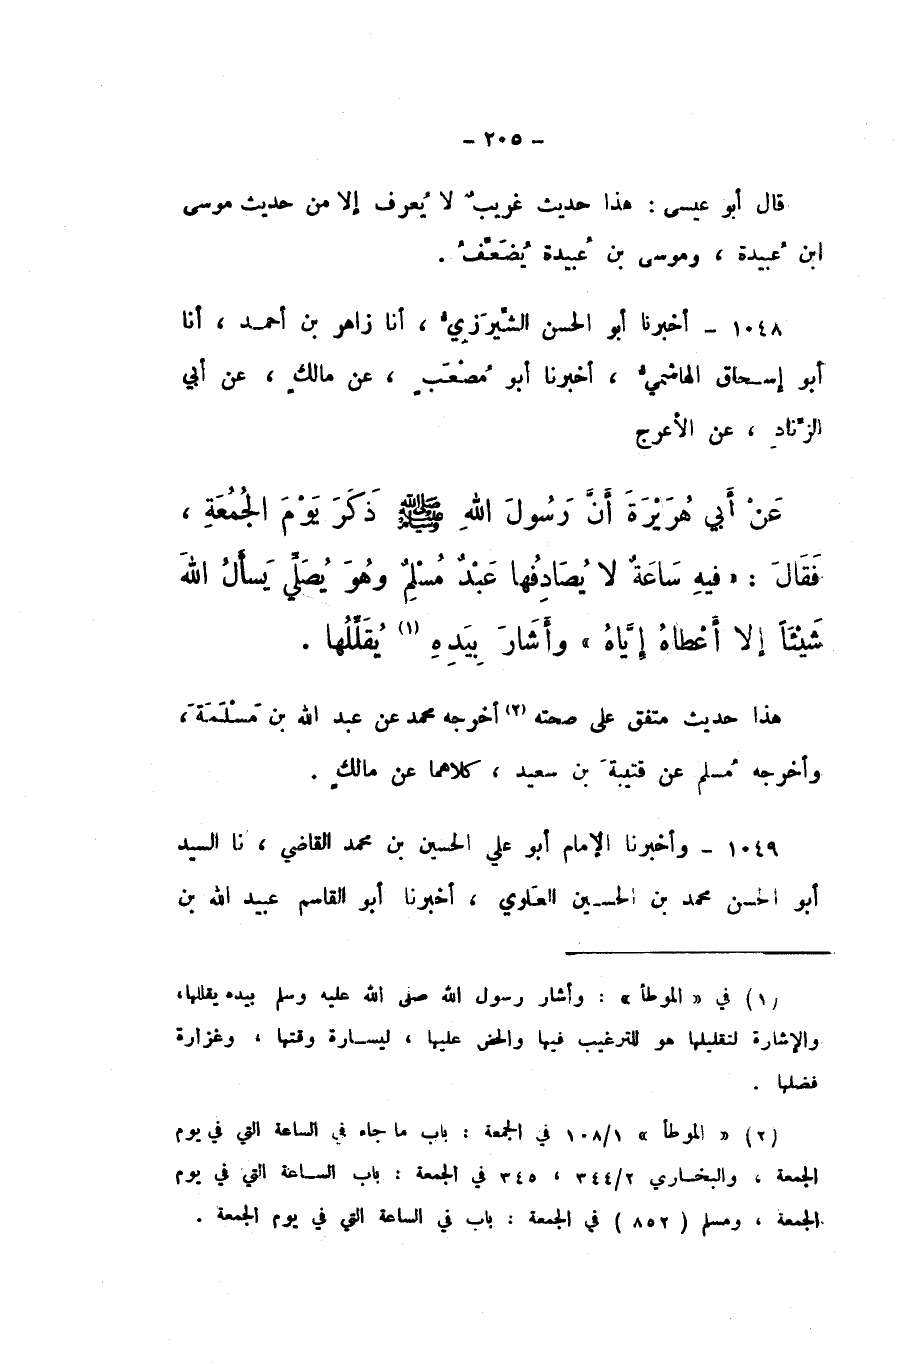 - ٢٠٥ -
قال أبو عيسى : هذا حديث غريبٌ لا يُعرف إلا من حديث موسى
ابن عُبيدة ، وموسى بن عُبيدة يُضَعَّفُ .
١٠٤٨ - أخبرنا أبو الحسن الشِّيرَزِيُّ ، أنا زاهر بن أحمـد ، أنا
أبو إسـحاق الهاشميُّ ، أخبرنا أبو مُصْعَبٍ ، عن مالكٍ ، عن أبي
الزِّنادِ ، عن الأعرج
عَنْ أَبي هُرَيْرَةَ أَنَّ رَسُولَ اللهِ ﷺ ذَكَرَ يَوْمَ الجُمُعَةِ ،
فَقَالَ : « فيهِ سَاعَةٌ لا يُصَادِفُها عَبْدٌ مُسْلِمٌ وهُوَ يُصَلِّي يَسأَلُ اللهَ
شَيْئَاً إلا أَعْطاهُ إيَّاهُ » وأَشَارَ بِيَدِهِ (١) يُقَلِّلُها .
هذا حديث متفق على صحته (٢) أخرجه محمد عن عبد الله بن مَسْلَمَةَ ،
وأخرجه مُسلم عن قتيبةَ بن سعيد ، كلاهما عن مالكٍ .
١٠٤٩ - وأخبرنا الإمام أبو علي الحسين بن محمد القاضي ، نا السيد
أبو الحسن محمد بن الحسـين العلَوي ، أخبرنا أبو القاسم عبيد الله بن
(١) في « الموطأ » : وأشار رسول الله صلى الله عليه وسلم بيده يقللها،
والإشارة لتقليلها هو للترغيب فيها والحض عليها ، ليسـارة وقتها ، وغزارة
فضلها .
(٢) « الموطأ » ١٠٨/١ في الجمعة : باب ما جاء في الساعة التي في يوم
الجمعة ، والبخـاري ٣٤٤/٢ ، ٣٤٥ في الجمعة : باب السـاعة التي في يوم
الجمعة ، ومسلم ( ٨٥٢ ) في الجمعة : باب في الساعة التي في يوم الجمعة .